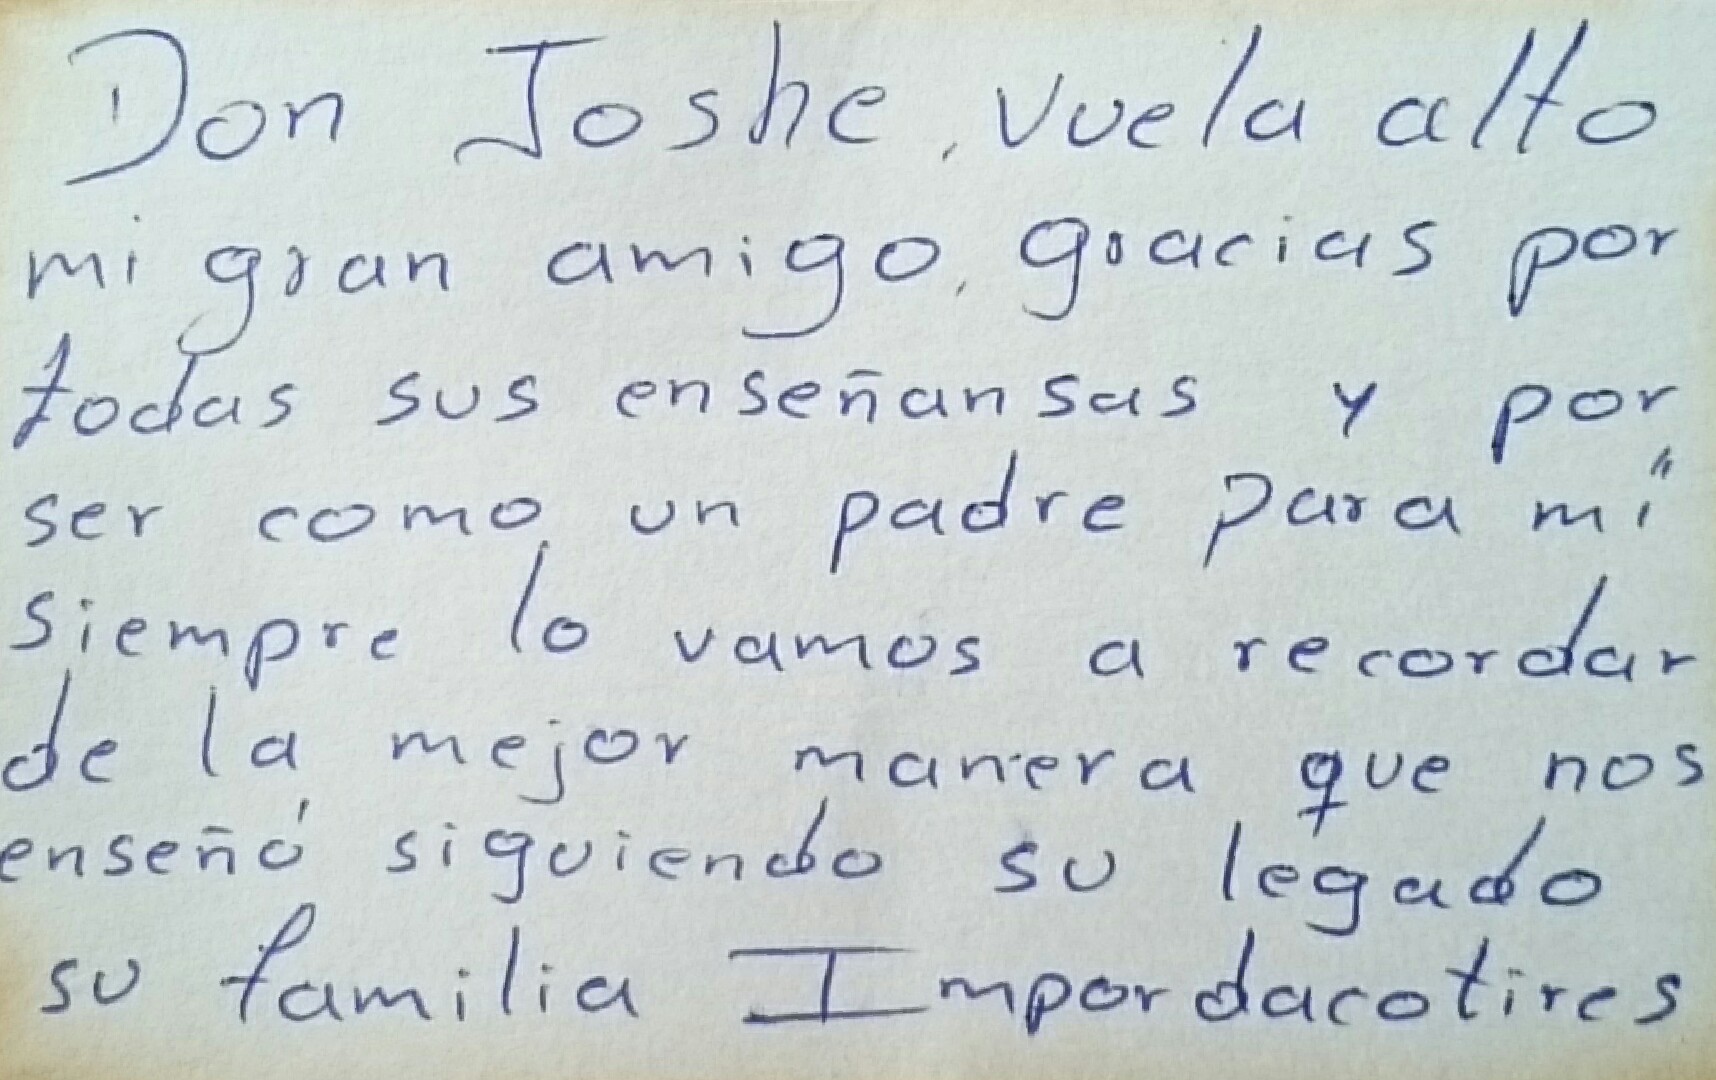 Don Joshe, vuela alto
mi gran amigo, gracias por
todas sus enseñansas y por
ser como un padre para mí
siempre lo vamos a recordar
de la mejor manera que nos
enseñó siguiendo su legado
su familia Impordacotires